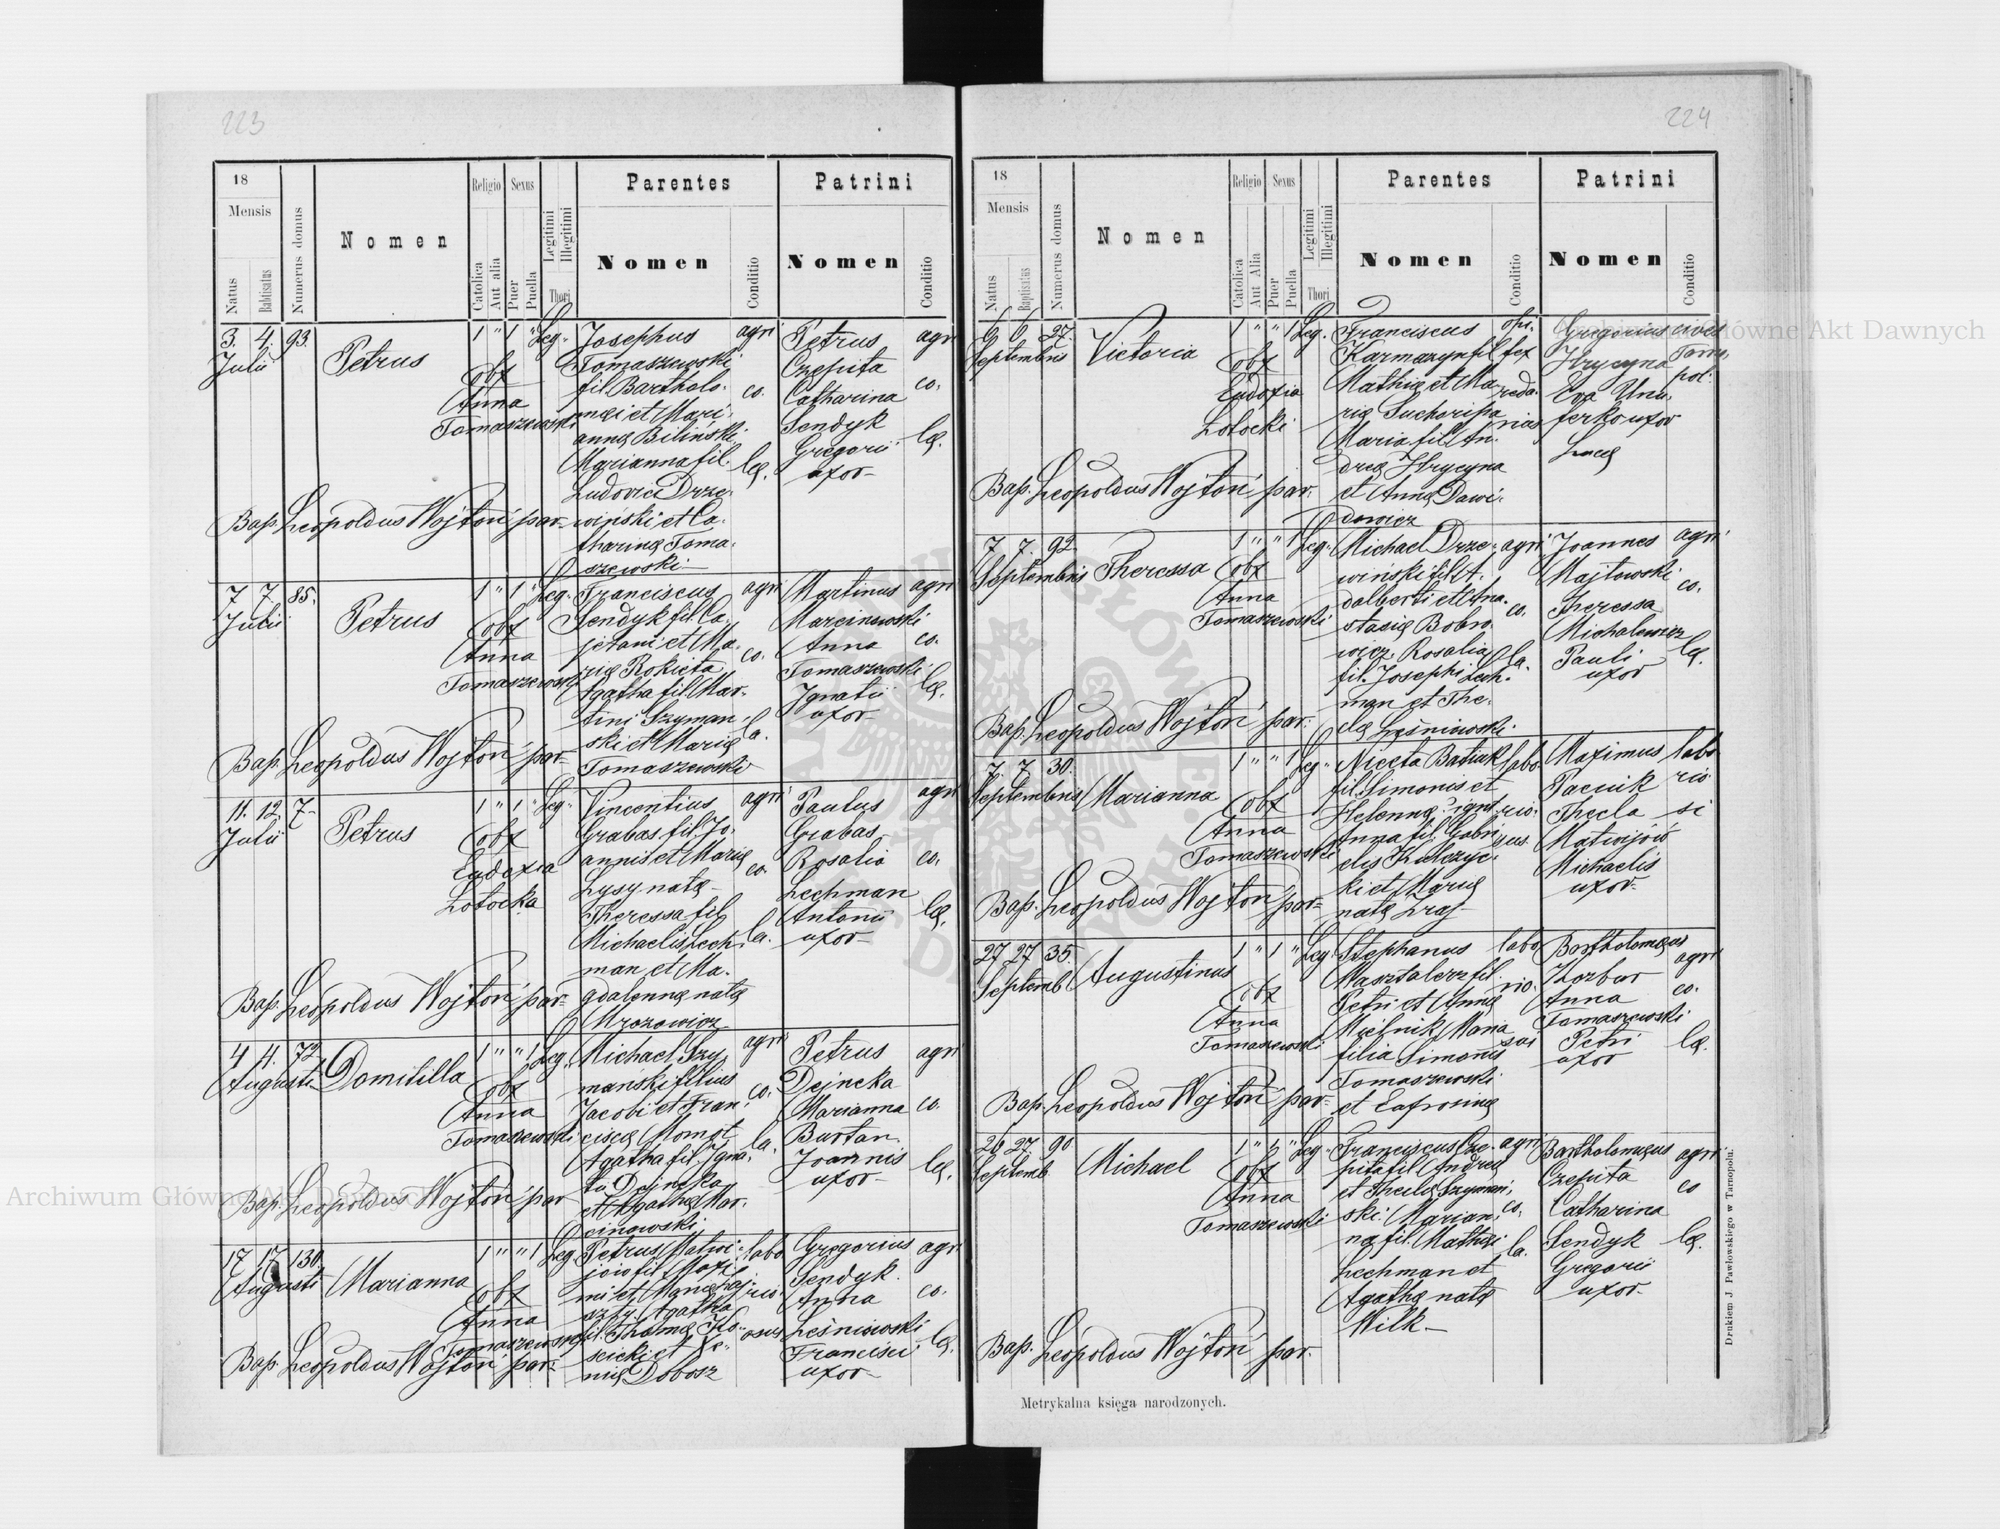 223
18
Mensis
Natus
Babtisatus
Numerus domus
Nomen
Religio
Catolica
Aut alia
Sexus
Puer
Puella
Legitimi
Illegitimi
Thori
Parentes
Nomen
Conditio
Patrini
Nomen
Conditio
3. 4. 93.
Julii
Petrus
1 " 1 " Leg.
obx
Anna
Tomaszewski
Josephus
Tomaszewski
fil Bartholo-
mæi et Mari-
annæ Biliński
Marianna fil.
Ludovici Drze-
wiński et Ca-
tharinæ Toma-
szewski
agri
co.
læ.
Petrus
Czepita
Catharina
Sendyk
Gregorii
uxor
agri
co.
læ.
Bap. Leopoldus Wojtoń par.
7 7. 85.
Julii
Petrus
1 " 1 " Leg.
obx
Anna
Tomaszewski
Franciscus
Sendyk fil. Ca-
jetani et Ma-
riæ Rokieta
Agatha fil. Mar-
tini Szyman-
ski et Mariæ
Tomaszewski
agri
co.
la.
Martinus
Marcinowski
Anna
Tomaszewski
Ignatii
uxor
agri
co.
læ.
Bap. Leopoldus Wojtoń par.
11. 12. 7
Julii
Petrus
1 " 1 " Leg.
obx
Eudoxia
Łotocka
Vincentius
Grabas fil. Jo-
annis et Mariæ
Łysy natæ
Theressa fil.
Michaelis Lech-
man et Ma-
gdalennæ natæ
Mrozowicz
agri
co.
la.
Paulus
Grabas
Rosalia
Lechman
Antonii
uxor
agri
co.
læ.
Bap. Leopoldus Wojtoń par.
4 4. 72.
Augusti
Domitilla
1 " " 1 Leg.
obx
Anna
Tomaszewski
Michael Szy-
mański filius
Jacobi et Fran-
ciscæ Momot
Agatha fil. Igna-
tii Dejneka
et Agathæ Mar-
cinowski
agri
co.
la.
Petrus
Dejneka
Marianna
Burtan
Joannis
uxor
agri
co.
læ.
Bap. Leopoldus Wojtoń par
17 17. 130.
Augusti
Marianna
1 " " 1 Leg
obx
Anna
Tomaszewski
Petrus Matwi-
jów fil. Maxi-
mi et
Agatha
fil. Thomæ Ko-
scicki et Xe-
niæ Dobosz
labo
rio
osus
Gregorius
Sendyk
Anna
Leśniowski
Francisci
uxor
agri
co.
læ.
Bap. Leopoldus Wojtoń par.
224
18
Mensis
Natus
Baptisatus
Numerus domus
Nomen
Religio
Catolica
Aut Alia
Sexus
Puer
Puella
Legitimi
Illegitimi
Thori
Parentes
Nomen
Conditio
Patrini
Nomen
Conditio
6 6 27.
Septembris
Victoria
1 " " 1 Leg.
obx
Eudoxia
Łotocki
Franciscus
Karmazyn fil
Mathiæ et Ma
riæ Sucheripa
Maria fil. An-
dreæ Hrycyna
et Annæ Dawi-
dowicz
opi-
fex
Gregorius
Hrycyna
Eva Unu-
ferko uxor
Lucæ
cives
Tarno
pol.
Bap. Leopoldus Wojtoń par.
7. 7. 92.
Septembris
Theressa
1 " " 1 Leg.
obx
Anna
Tomaszewski
Michael Drze-
wiński fil. A-
dalberti et Ana-
stasiæ Bobro
wicz. Rosalia
fil. Josephi Lech-
man et The-
clæ Leśniowski.
agri
co.
la.
Joannes
Majtowski
Theressa
Michalewicz
Pauli
uxor
agri
co.
læ.
Bap. Leopoldus Wojtoń par.
7. 7. 30.
Septembris
Marianna
1 " " 1 Leg.
obx
Anna
Tomaszewski
Niceta Batiuk
fil. Simonis et
Helennæ ignt
Anna fil. Gabri
elis Kulczyc-
ki et Mariæ
natæ Zraj
labo
rio-
sus
Maximus
Pacuik
Thecla
Matwijów
Michaelis
uxor
labo
rio
si
Bap. Leopoldus Wojtoń par.
27 27 35.
Septemb
Augustinus
1 " 1 " Leg
obx
Anna
Tomaszewski
Stephanus
Masztalerz fil.
Petri et Annæ
Mielnik Maria
filia Simonis
Tomaszewski
et Eufrosinæ
labo
rio.
sus
Bartholomæus
Kozbur
Anna
Tomaszewski
Petri
uxor
agri
co.
læ.
Bap. Leopoldus Wojtoń par.
26 27. 90
Septemb
Michael
1 " 1 " Leg
obx
Anna
Tomaszewski
Franciscus Cze-
pita fil Andreæ
et Theclæ Szymań-
ski. Marian-
na fil. Mathæi
Lechman et
Agathæ natæ
Wilk
agri
co.
la.
Bartholomæus
Czepita
Catharina
Sendyk
Gregorii
uxor
agri
co
læ.
Bap. Leopoldus Wojtoń par.
Metrykalna księga narodzonych.
Drukiem J. Pawłowskiego w Tarnopolu.
Archiwum Główne Akt Dawnych